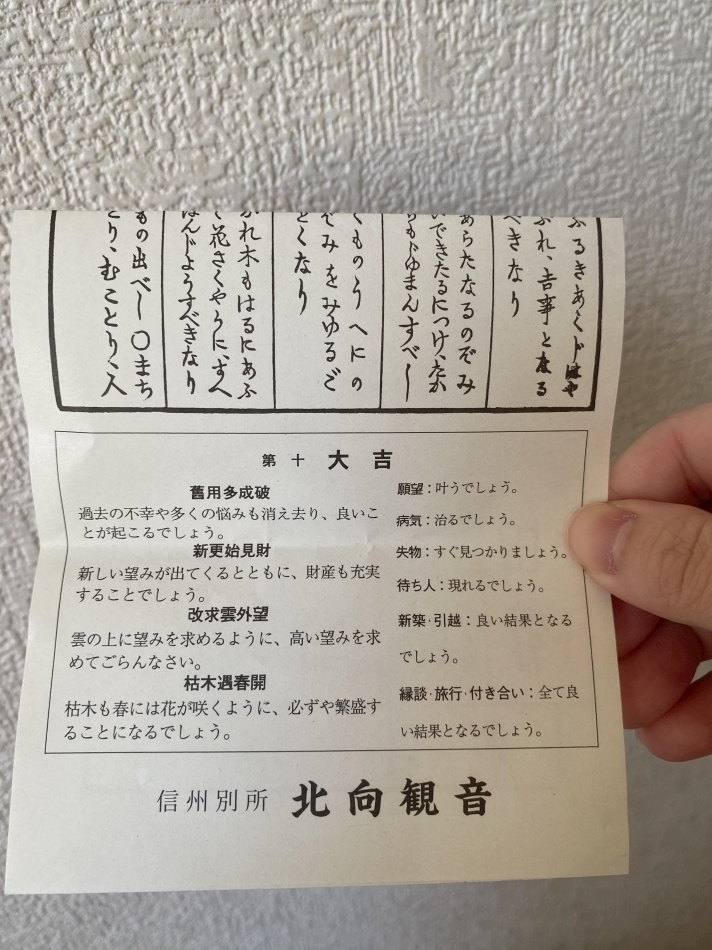 ふるきあくじはや
ぶれ、吉事となる
べきなり
あらたなるのぞみ
いできたるにつけ、たか
らもじゆまんすべし
くものうへにの
ぞみをみゆるご
とくなり
かれ木もはるにあふ
て花さくやうに、すへ
はんじようすべきなり
もの出べし〇まち
とり、むことり、入
第十 大吉
舊用多成破
過去の不幸や多くの悩みも消え去り、良いこ
とが起こるでしょう。
新更始見財
新しい望みが出てくるとともに、財産も充実
することでしょう。
改求雲外望
雲の上に望みを求めるように、高い望みを求
めてごらんなさい。
枯木遇春開
枯木も春には花が咲くように、必ずや繁盛す
ることになるでしょう。
願望：叶うでしょう。
病気：治るでしょう。
失物：すぐ見つかりましょう。
待ち人：現れるでしょう。
新築・引越：良い結果となる
でしょう。
縁談・旅行・付き合い：全て良
い結果となるでしょう。
信州別所 北向観音